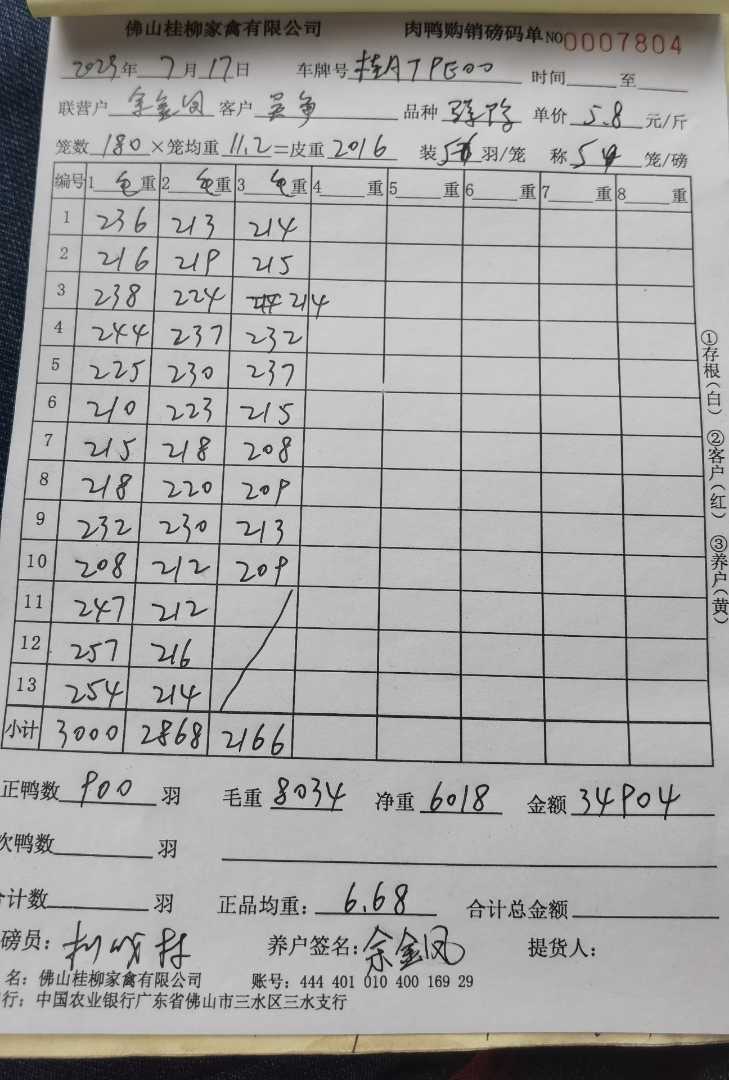 佛山桂柳家禽有限公司 肉鸭购销磅码单 NO 0007804
2023年 7月17日 车牌号 桂ATPE00 时间 至
联营户 余金凤 客户 品种 单价 5.8 元/斤
笼数 180 ×笼均重 11.2 =皮重 2016 装 5 羽/笼 称 5 笼/磅
编号 1 毛重 2 毛重 3 毛重 4 重 5 重 6 重 7 重 8 重
1 236 213 214
2 216 219 215
3 238 224 214
4 244 237 232
5 225 230 237
6 210 223 215
7 215 218 208
8 218 220 209
9 232 230 213
10 208 212 209
11 247 212
12 257 216
13 254 214
小计 3000 2868 2166
正鸭数 900 羽 毛重 8034 净重 6018 金额 34904
次鸭数 羽
合计数 羽 正品均重: 6.68 合计总金额
磅员: 养户签名: 余金凤 提货人:
名: 佛山桂柳家禽有限公司 账号: 444 401 010 400 169 29
行: 中国农业银行广东省佛山市三水区三水支行
①存根(白) ②客户(红) ③养户(黄)